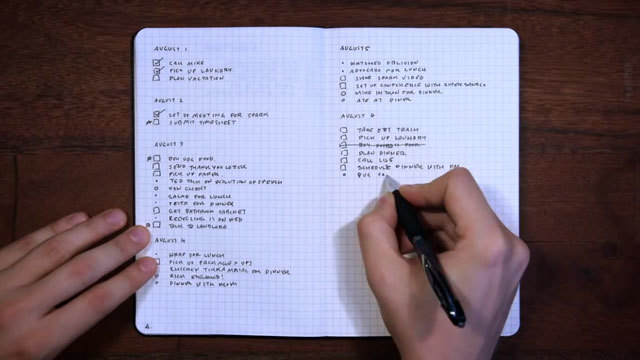 AUGUST 1
CALL MIKE
PICK UP LAUNDRY
PLAN VACTATION
AUGUST 2
SET UP MEETING FOR SPARK
SUBMIT TIMESHEET
AUGUST 3
BUY DOG FOOD
SEND THANK YOU LETTER
PICK UP PAPER
TED TALK ON EVOLUTION OF SPEECH
NEW CLIENT
SALAD FOR LUNCH
FOR DINNER
GET BATHROOM CABINET
RECYCLING IS ON WED
TALK TO LANDLORD
AUGUST 4
WRAP FOR LUNCH
PICK UP PACKAGE > UPS
CHICKEN TIKKA MASALA FOR DINNER
RICK ENGAGED!
DINNER WITH
4
AUGUST 5
WATCHED OBLIVION
AVOCADO FOR LUNCH
SPARK VIDEO
SET UP CONFERENCE WITH
MIKE IN TOWN FOR DINNER
ATE AT DINER
AUGUST 6
TAKE OUT TRASH
PICK UP LAUNDRY
BUY
PLAN DINNER
CALL LISE
SCHEDULE DINNER WITH